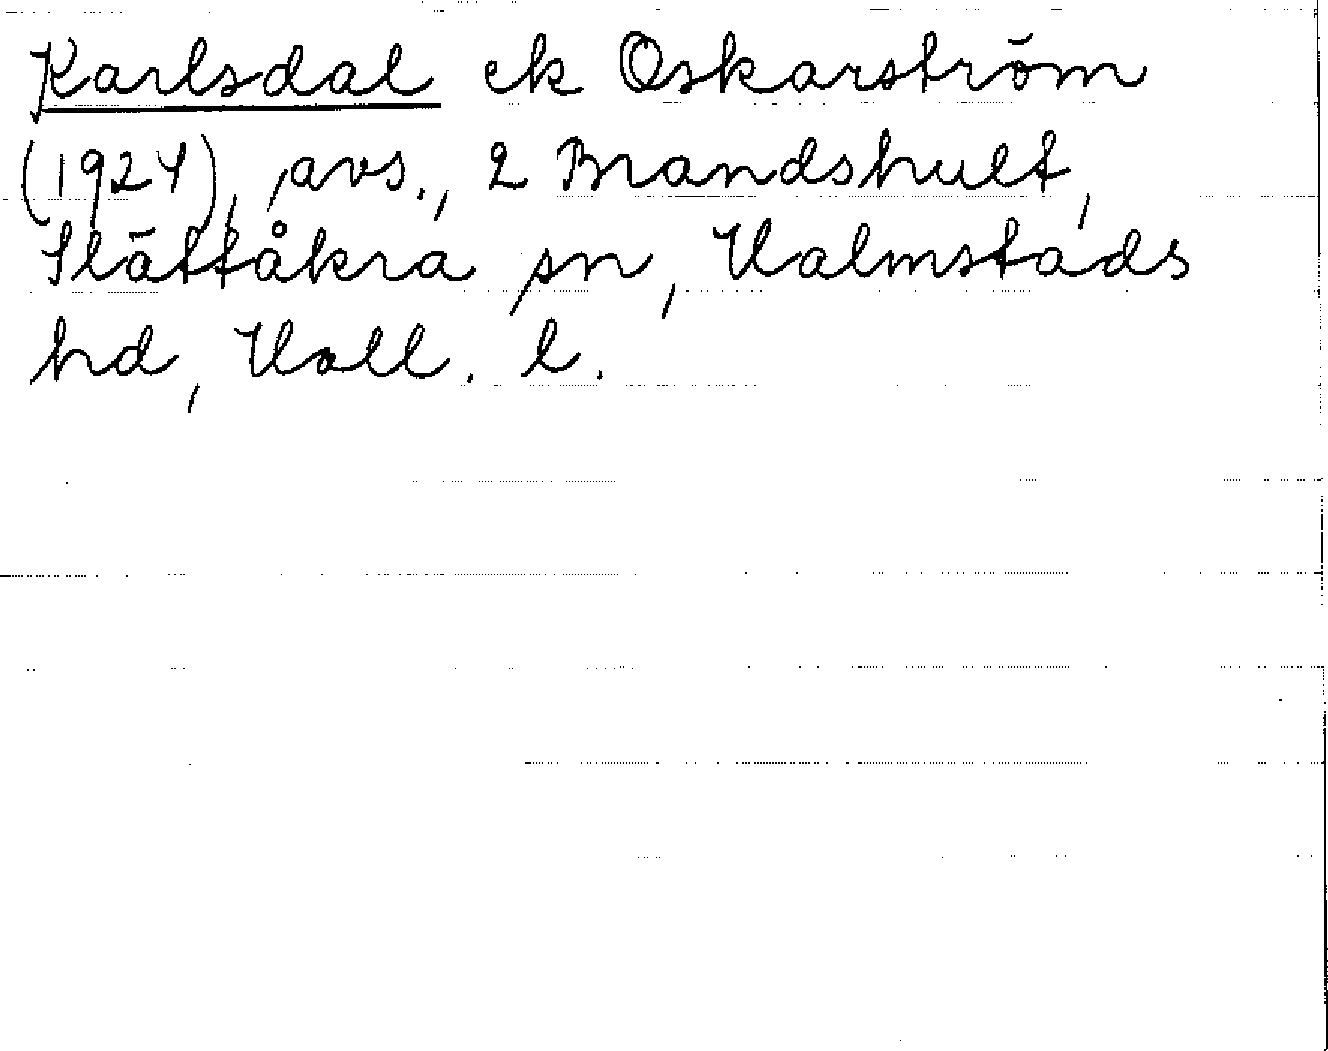 Karlsdal ek Oskarström
(1924), avs., 2 Brandshult,
Slättåkra sn, Halmstads
hd, Hall. l.